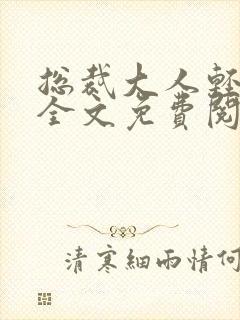 总裁大人轻
全文免費閱
清寒細雨情何